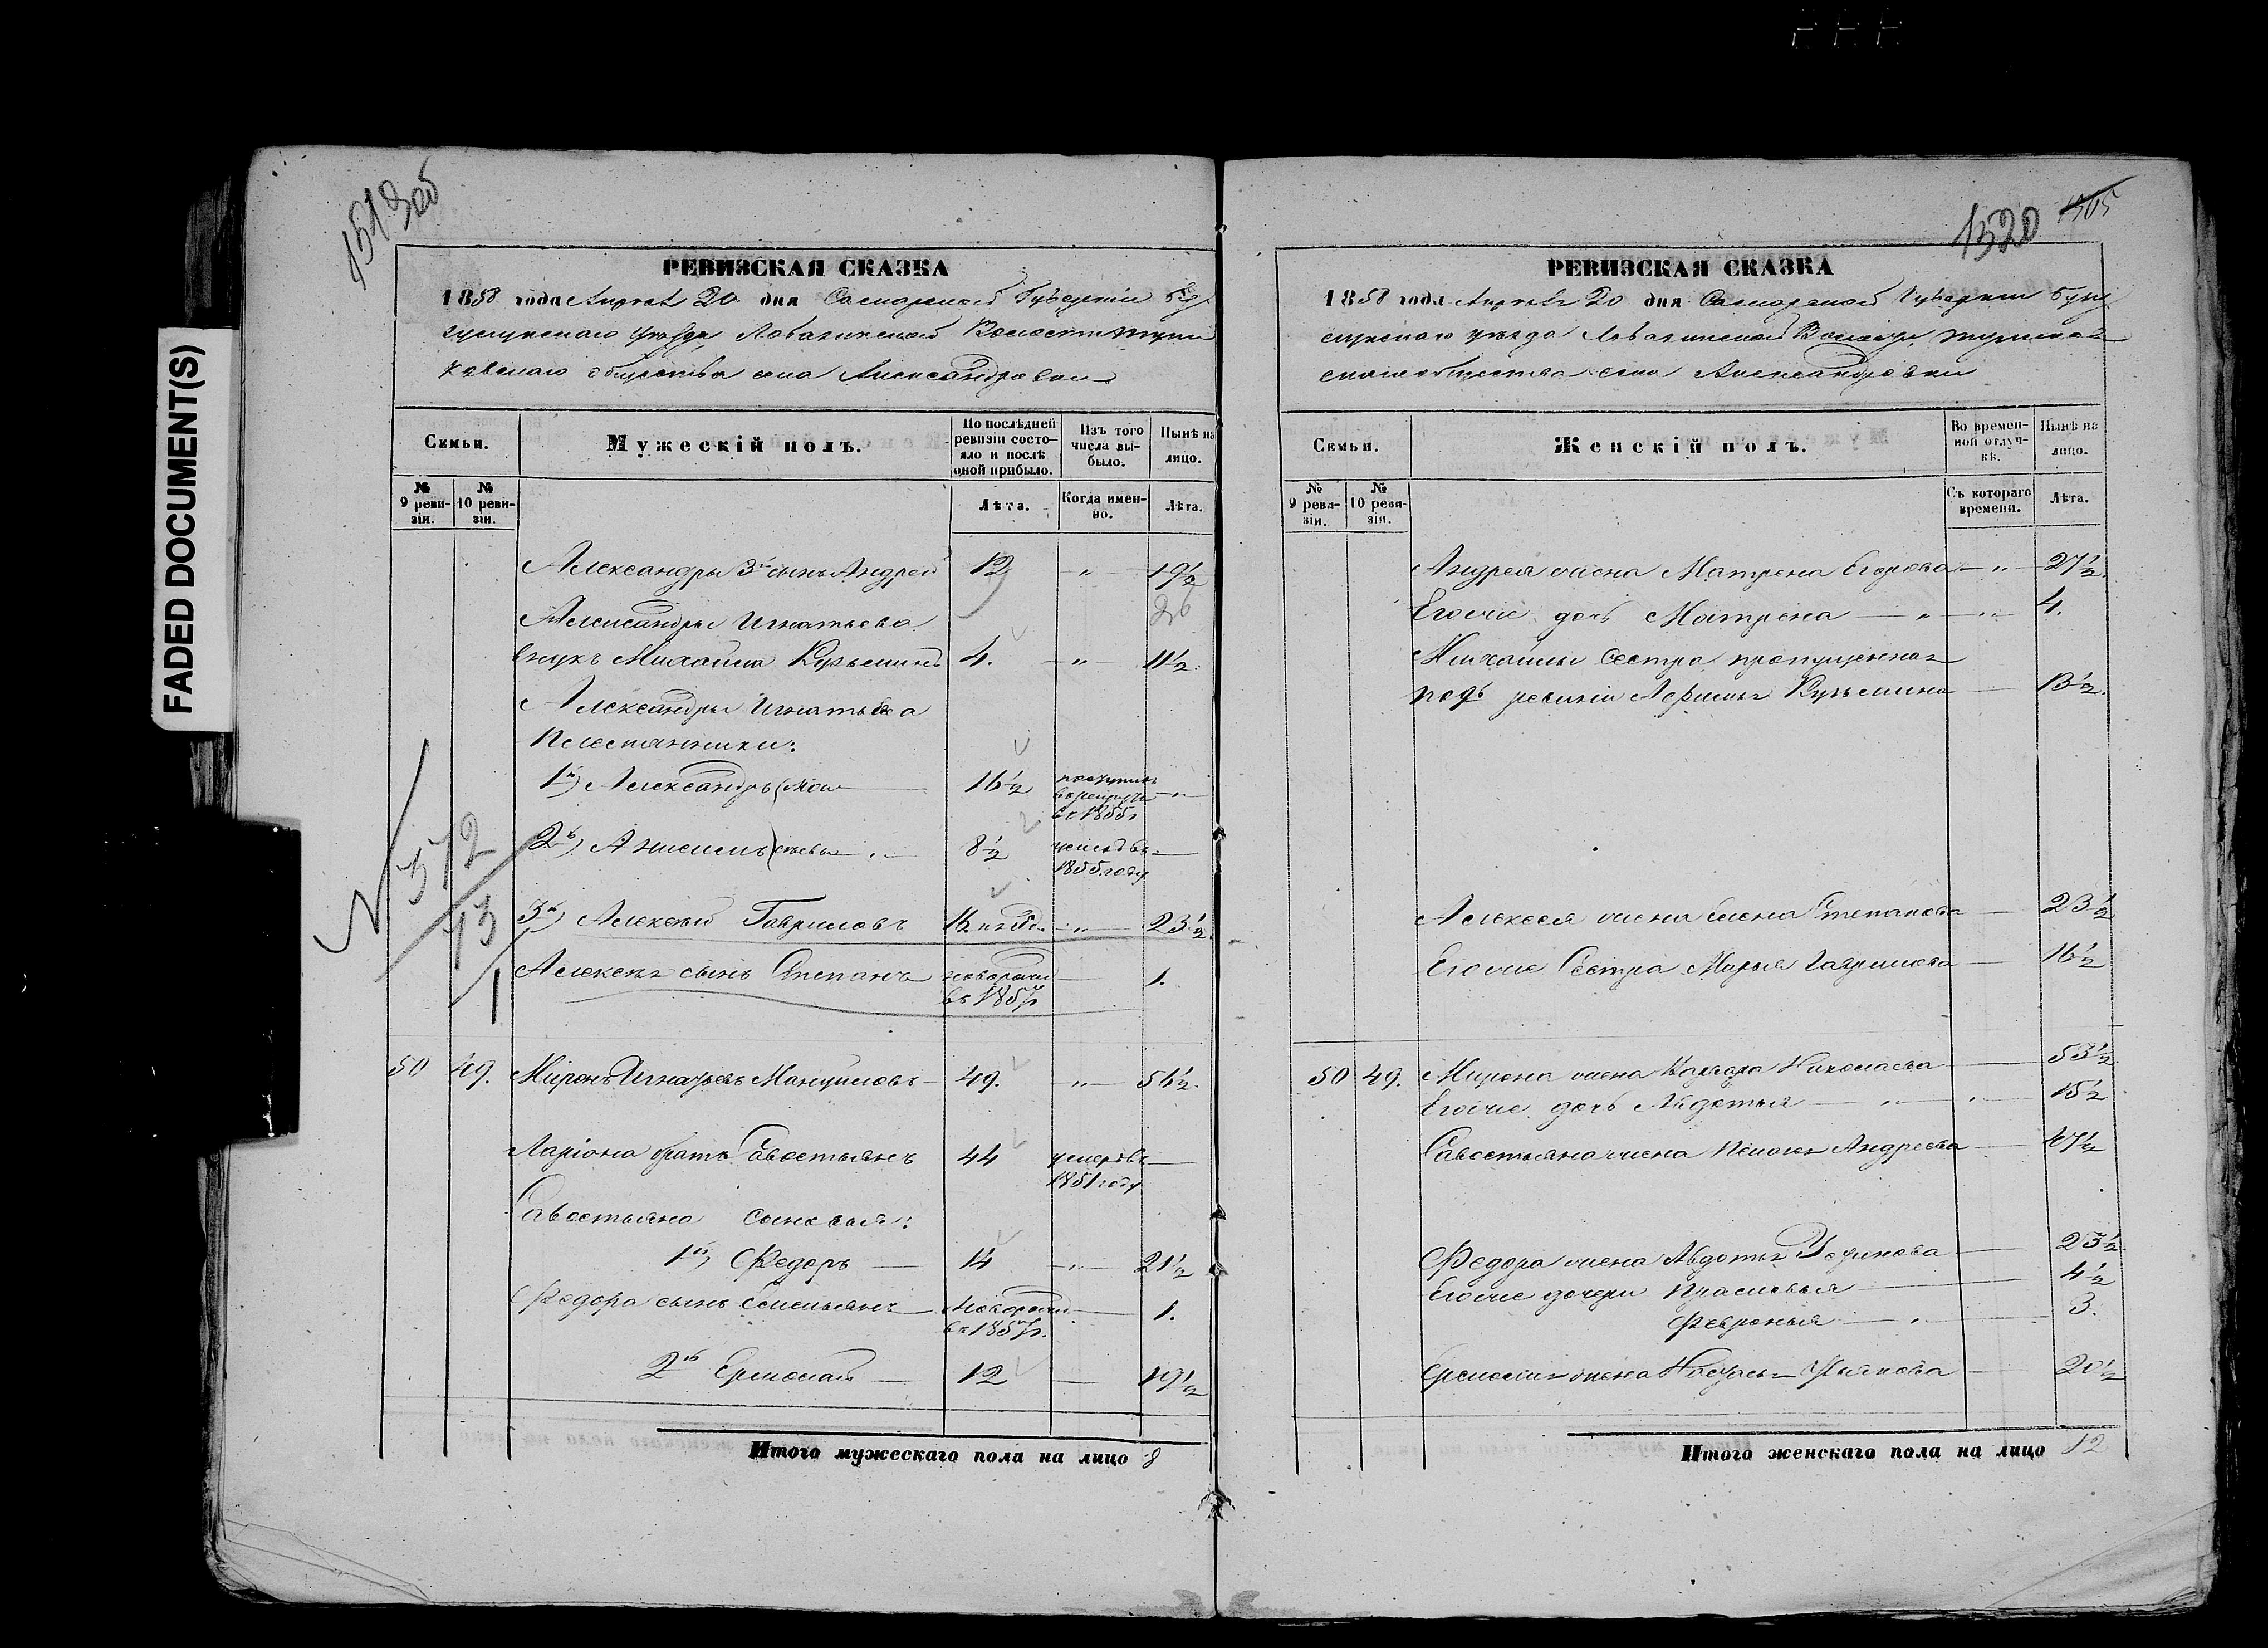 FADED DOCUMENT(S)
1519 об
РЕВИЗСКАЯ СКАЗКА
1858 года Апреля 20 дня Самарской Губерніи Бу
зулукскаго уѣзда Лобазинской Волости
общества села Александровки
Семьи.
Мужескій полъ.
По послѣдней ревизіи состояло и послѣ оной прибыло.
Изъ того числа выбыло.
Нынѣ на лицо.
№ 9 ревизіи.
№ 10 ревизіи.
Лѣта.
Когда именно.
Лѣта.
Александры 3й сынъ Андрей 12 — " — 19½
26
Александры Игнатьева
внукъ Михайла Кузьминъ 4. — " — 11½.
Александры Игнатьева
Племянники:
1й) Александръ 16½ поступилъ въ рекруты въ 1855 — " —
2й) 8½ умеръ въ 1855 году —
3й) Алексей Гавриловъ — " — 23½.
Алексея сынъ Степанъ новорожд. въ 1857 г. — 1.
N 572
13
50 49. Миронъ Игнатьевъ Мануиловъ — 49. " — 56½.
Ларіона братъ Савостьянъ 44 умеръ въ 1851 году —
Савостьяна сыновья:
1й, Федоръ — 14 — " — 21½
Федора сынъ Емельянъ — новорожд. въ 1857 г. — 1.
2й Ермолай — 12 — 19½
Итого мужескаго пола на лицо 8
1520 1505
РЕВИЗСКАЯ СКАЗКА
1858 года Апреля 20 дня Самарской Губерніи Бузу
лукскаго уѣзда Лобазинской Волости
общества села Александровки
Семьи.
Женскій полъ.
Во временной отлучкѣ.
Нынѣ на лицо.
№ 9 ревизіи.
№ 10 ревизіи.
Съ котораго времени.
Лѣта.
Андрея жена Матрена Егорова — " — 27½.
Его же дочь Матрена — " — " — 4.
Михайлы сестра пропущенная
ревизіи Кузьмина — 13½.
Алексея жена Елена Степанова — 23½
Его же Сестра Марья Гаврилова — 16½
50 49. Мирона жена Варвара Николаева — 53½.
Его же дочь Авдотья — " — " — 15½
Савостьяна жена Пелагея Андреева — 47½
Федора жена Авдотья — 23½.
Его же дочери Прасковья — 4½
Февронья — " — 3.
Ермолая жена — 20½
Итого женскаго пола на лицо 12